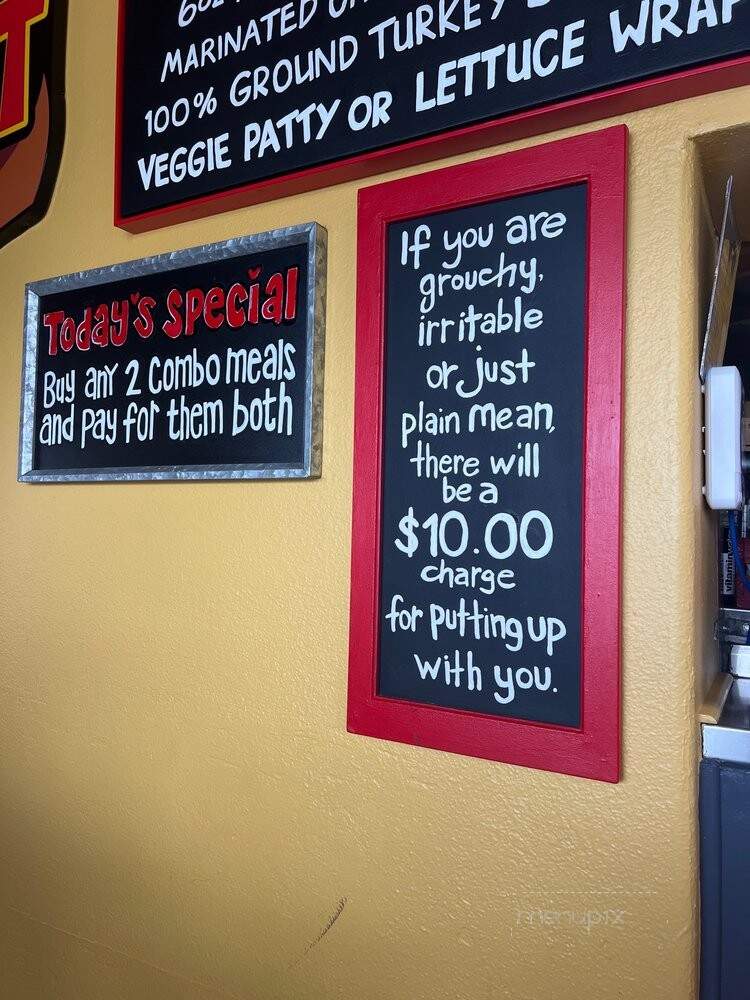 MARINATED
100% GROUND TURKEY
VEGGIE PATTY OR LETTUCE WRAP
Today's Special
Buy any 2 Combo meals
and pay for them both
If you are
grouchy,
irritable
or just
plain mean,
there will
be a
$10.00
charge
for putting up
with you.
menupix